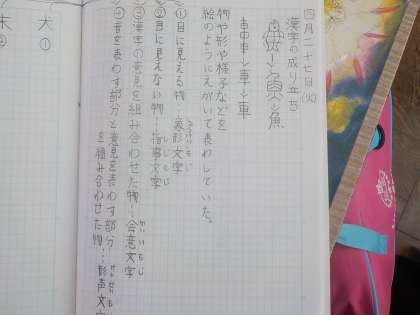 四月二十七日(火)
漢字の成り立ち
→魚→魚
車→車→車
物や形や様子などを
絵のようにえがいて表わしていた。
①目に見える物…象形文字
しょうけいもじ
②目に見えない物…指事文字
しじもじ
③漢字の意見を組み合わせた物…会意文字
かいいもじ
④音を表わす部分と意見を表わす部分
を組み合わせた物…形声文字
けいせいもじ
大①
末②